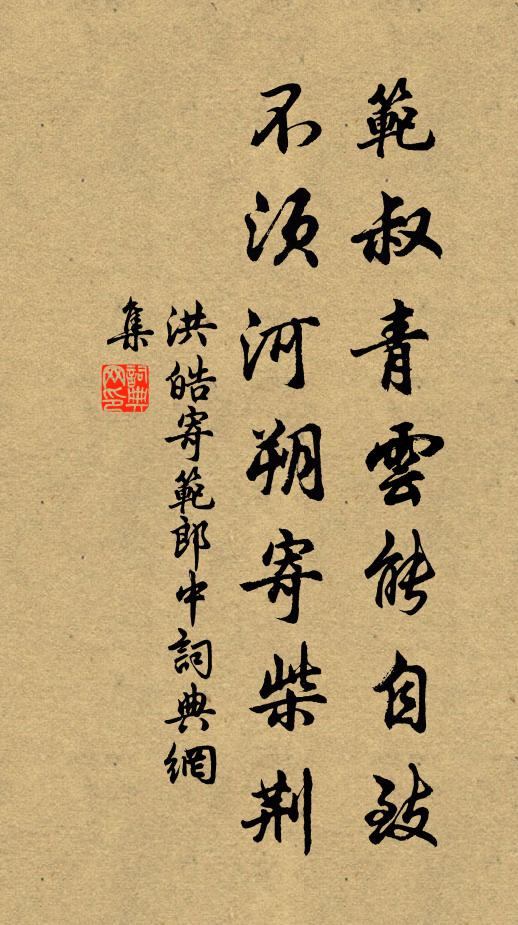 範叔青雲能自致
不須河朔寄柴荆
洪皓寄範郎中詞典網
集
詞典
网印